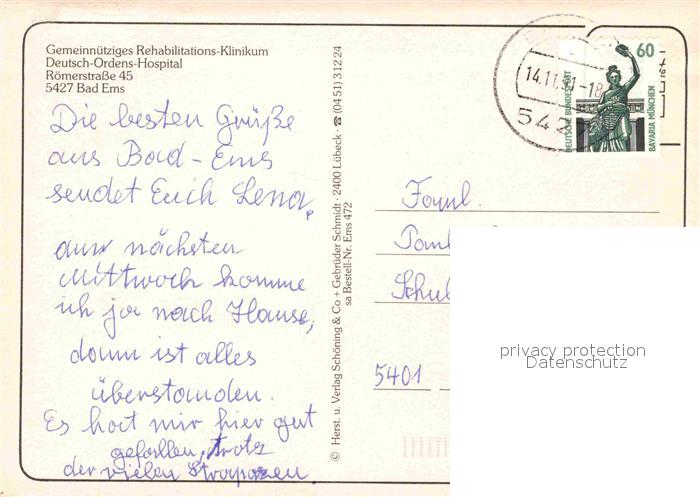 Gemeinnütziges Rehabilitations-Klinikum
Deutsch-Ordens-Hospital
Römerstraße 45
5427 Bad Ems
Die besten Grüße
aus Bad-Ems
sendet Euch Lena,
am nächsten
Mittwoch komme
ich ja nach Hause,
dann ist alles
überstanden.
Es hat mir hier gut
gefallen, trotz
der vielen Strapazen.
© Herst. u. Verlag Schöning & Co + Gebrüder Schmidt · 2400 Lübeck · ☎ (04 51) 3 12 24
sa Bestell-Nr. Ems 472
14.11.91-18
542
60
DEUTSCHE BUNDESPOST
BAVARIA MÜNCHEN
Faml.
5401
privacy protection
Datenschutz